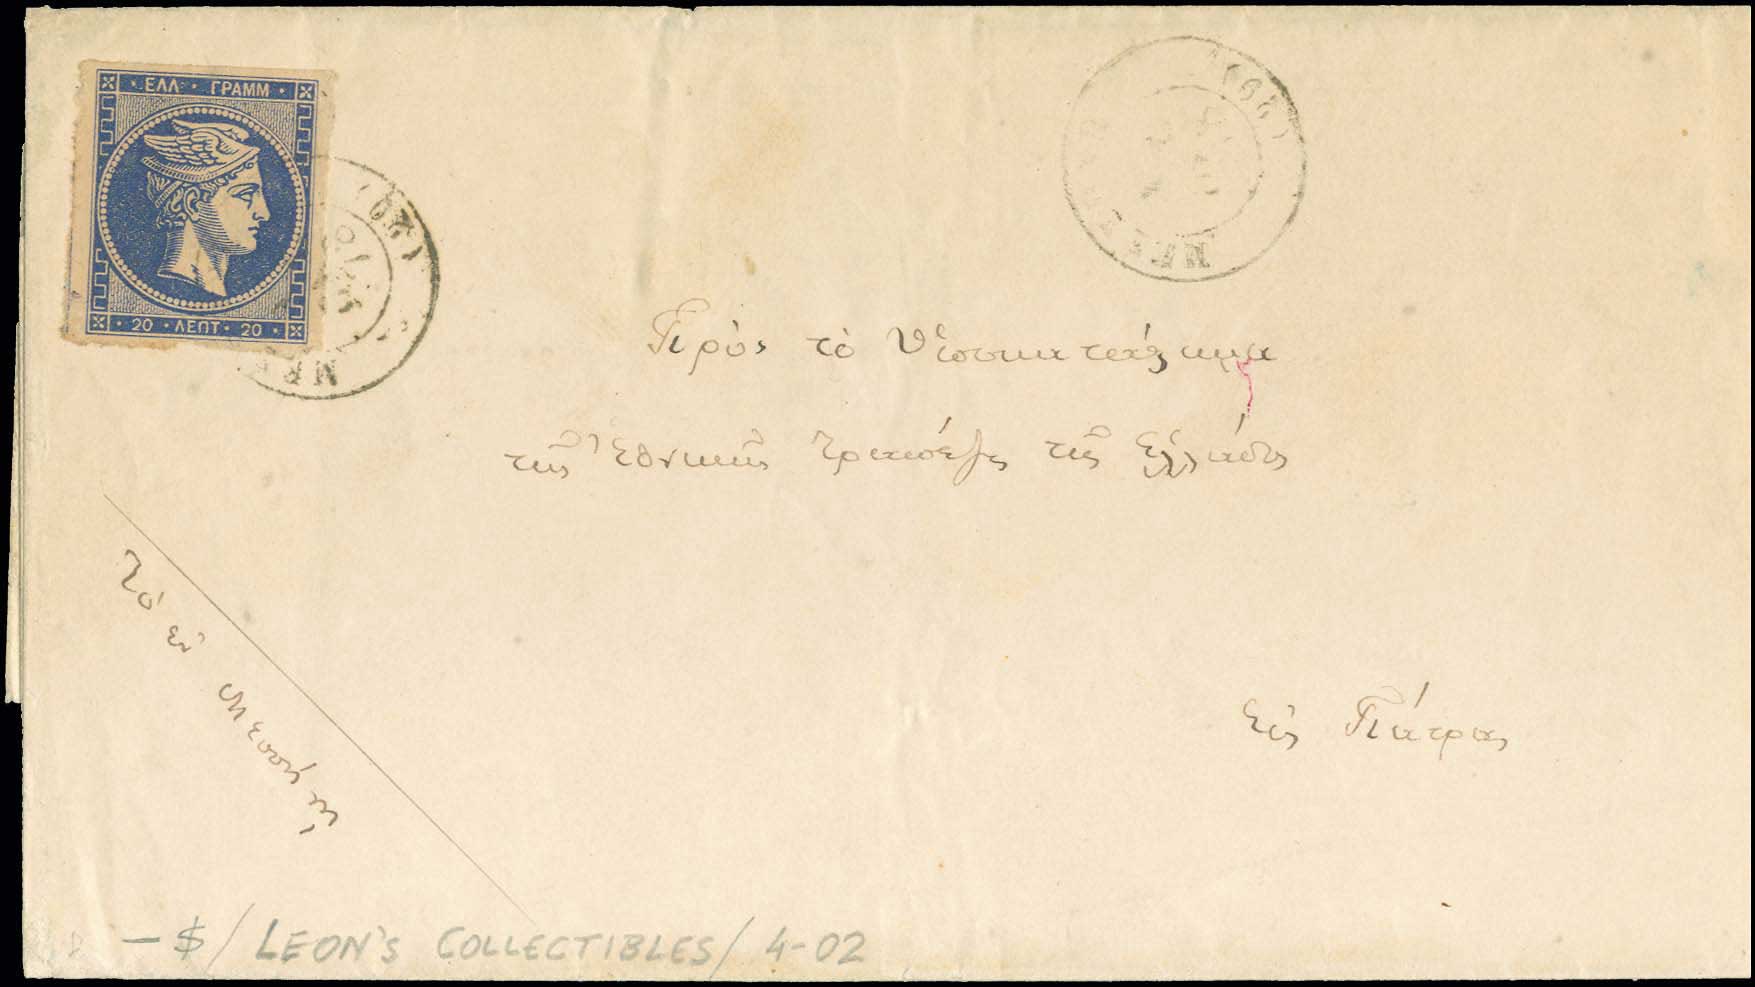 ΕΛΛ · ΓΡΑΜΜ
20 · ΛΕΠΤ · 20
Πρὸς τὸ Ὑποκατάστημα
τῆς Ἐθνικῆς Τραπέζης τῆς Ἑλλάδος
Τὸ ἐν Μεσσήνῃ
Εἰς Πάτρας
— $ / LEON'S COLLECTIBLES / 4-02